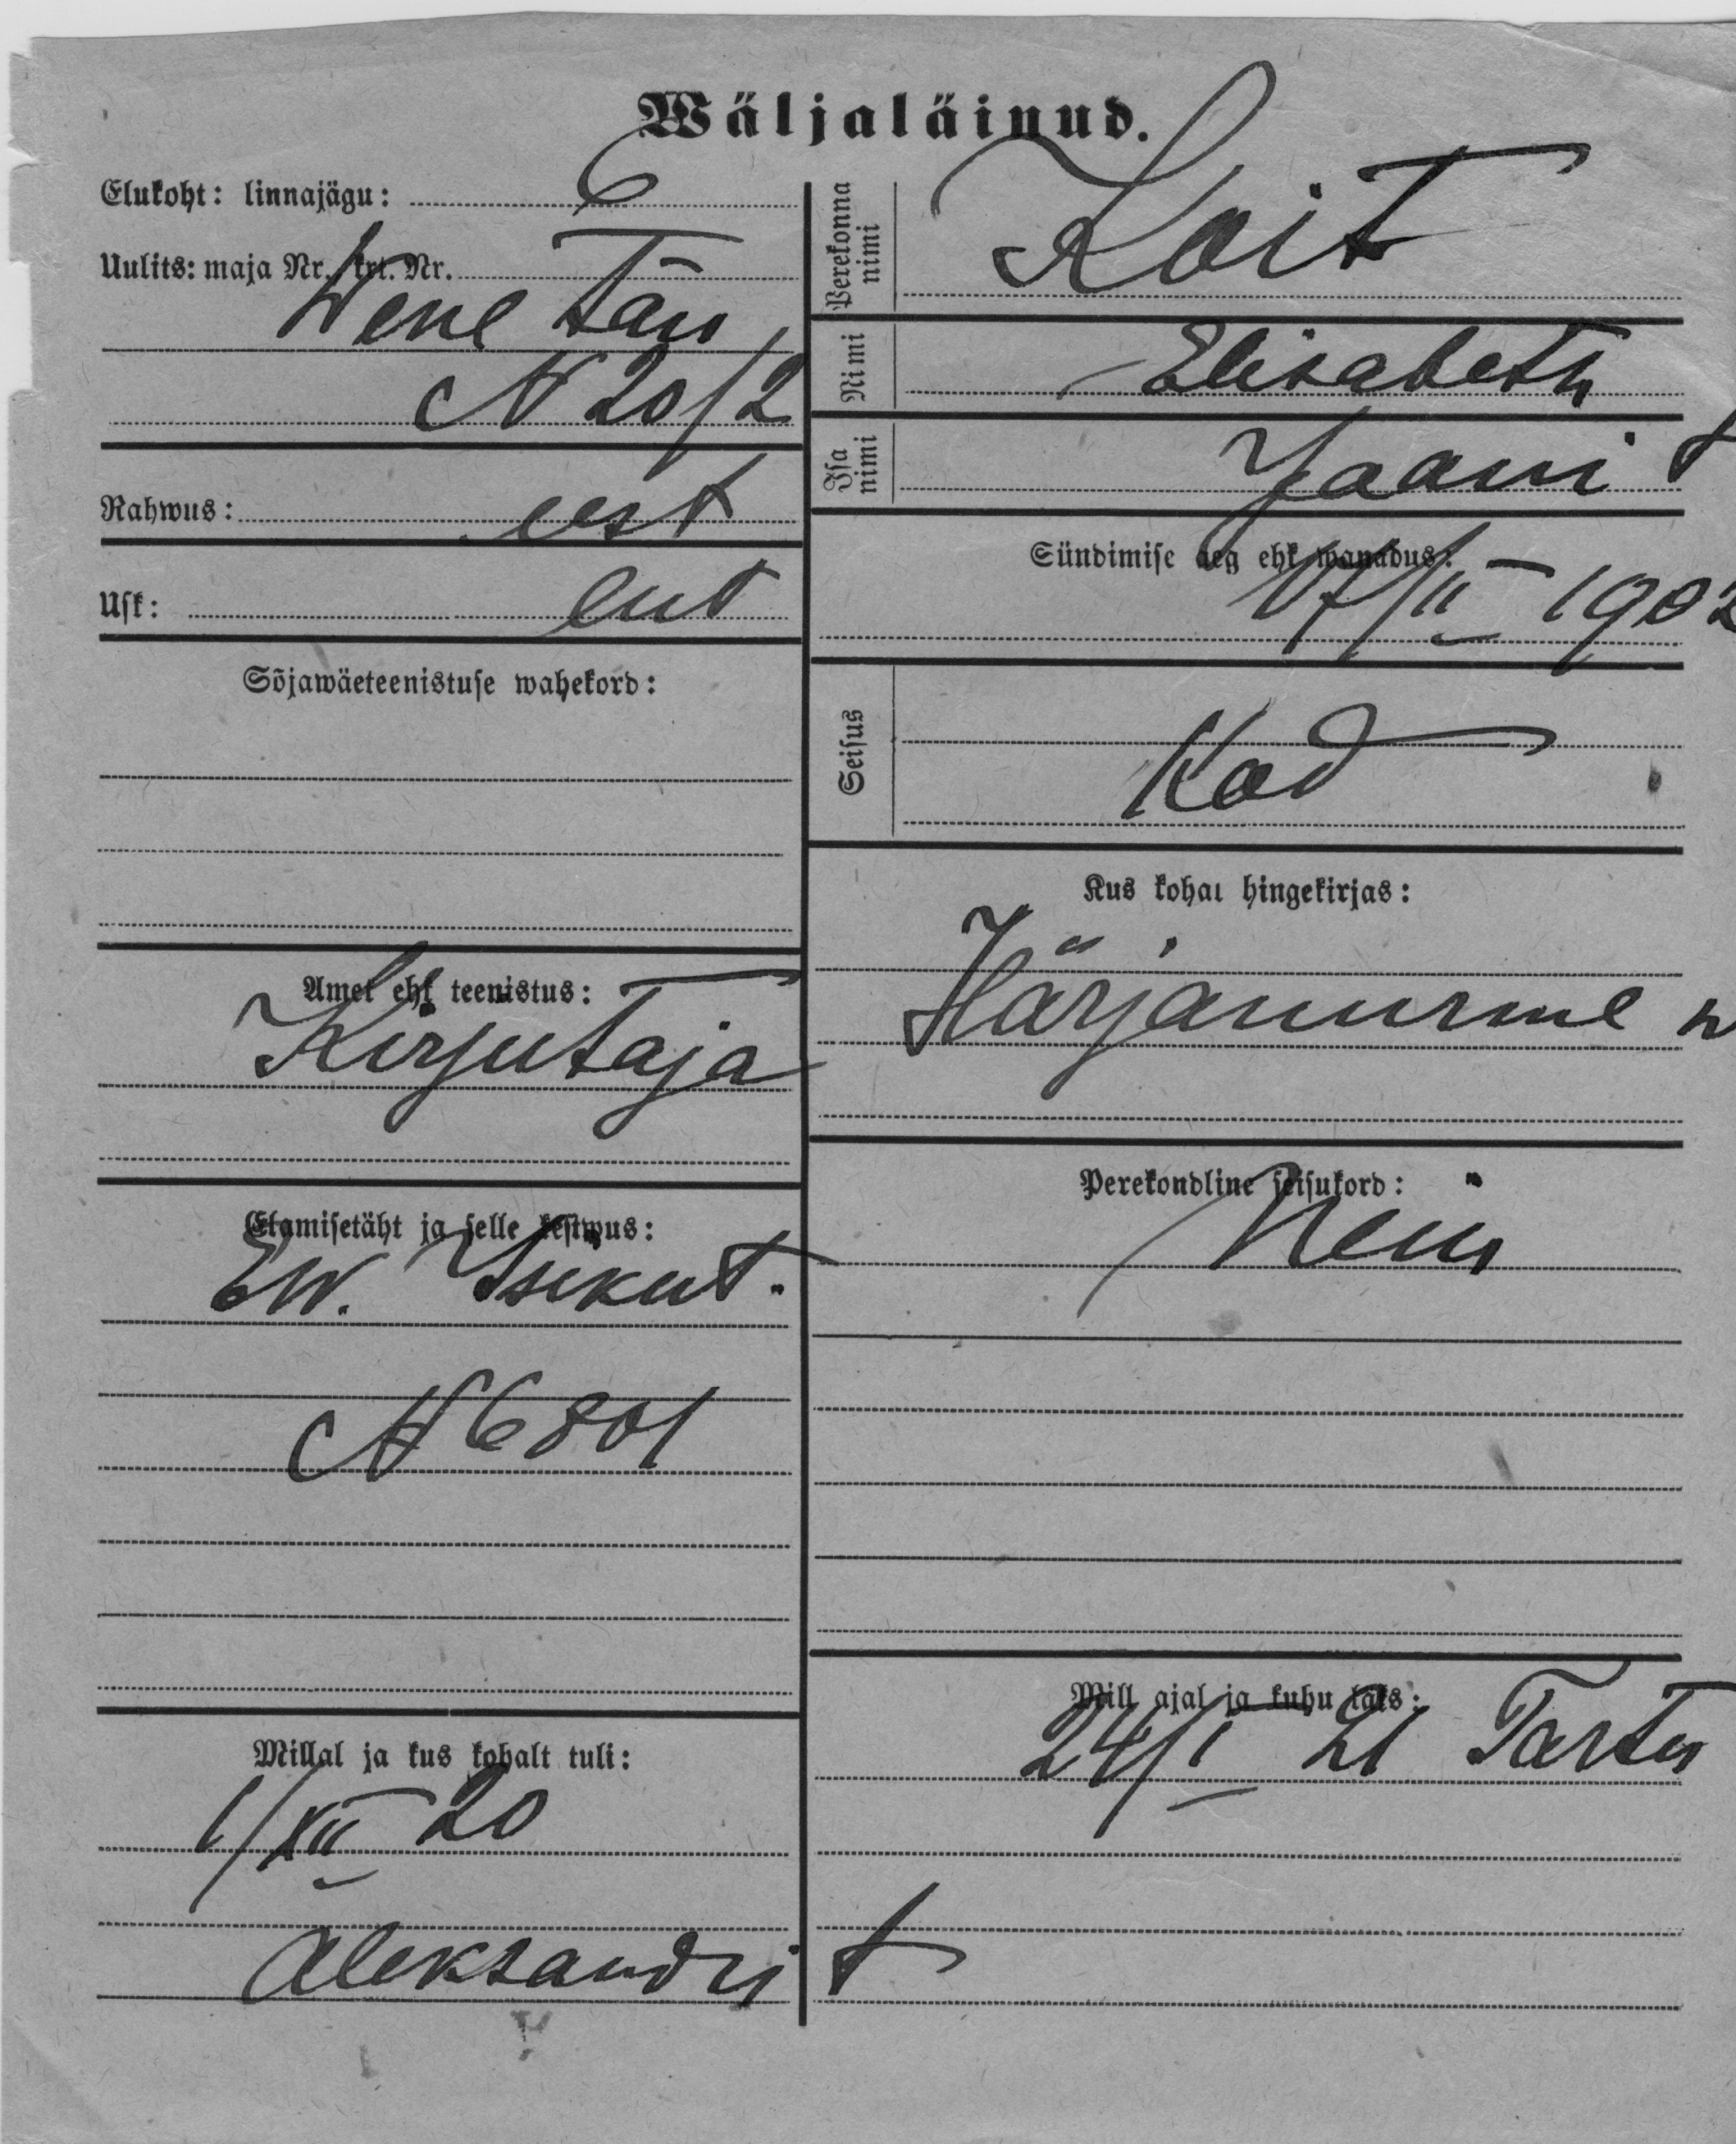 Wäljaläinud.
Elukoht: linnajägu: 6
Uulits: maja Nr. krt. Nr.
Wene tän
N 20/2
Rahwus: eest
Usk: lut
Sõjawäeteenistuse wahekord:
Amet ehk teenistus:
Kirjutaja
Elamisetäht ja selle kestwus:
EW. Isikut.
N 6801
Millal ja kus kohalt tuli:
1/XII 20
Aleksandri t
Perekonna nimi Koit
Nimi Elisabeth
Isa nimi Jaani t
Sündimise aeg ehk wanadus:
17/II 1902
Seisus
Kod
Kus kohal hingekirjas:
Härjanurme w
Perekondline seisukord:
Neiu
Mill ajal ja kuhu läks:
24/I 21 Tartu